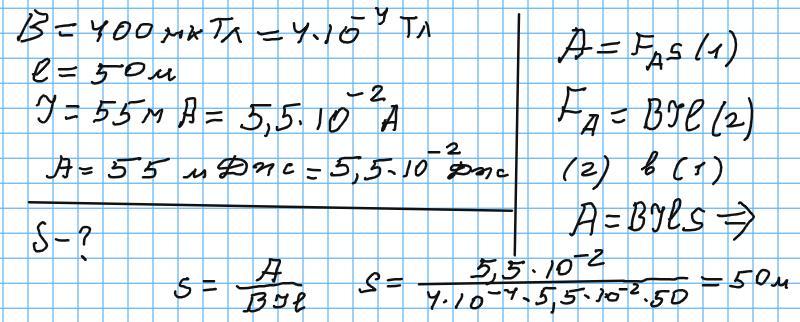 B = 400 мкТл = 4·10⁻⁴ Тл
l = 50 м
I = 55 м А = 5,5·10⁻² А
A = 55 мДжс = 5,5·10⁻² Джс
S – ?
A = F_A s (1)
F_A = BIl (2)
(2) в (1)
A = BIls ⇒
s = A / BIl   s = 5,5·10⁻² / 4·10⁻⁴·5,5·10⁻²·50 = 50 м